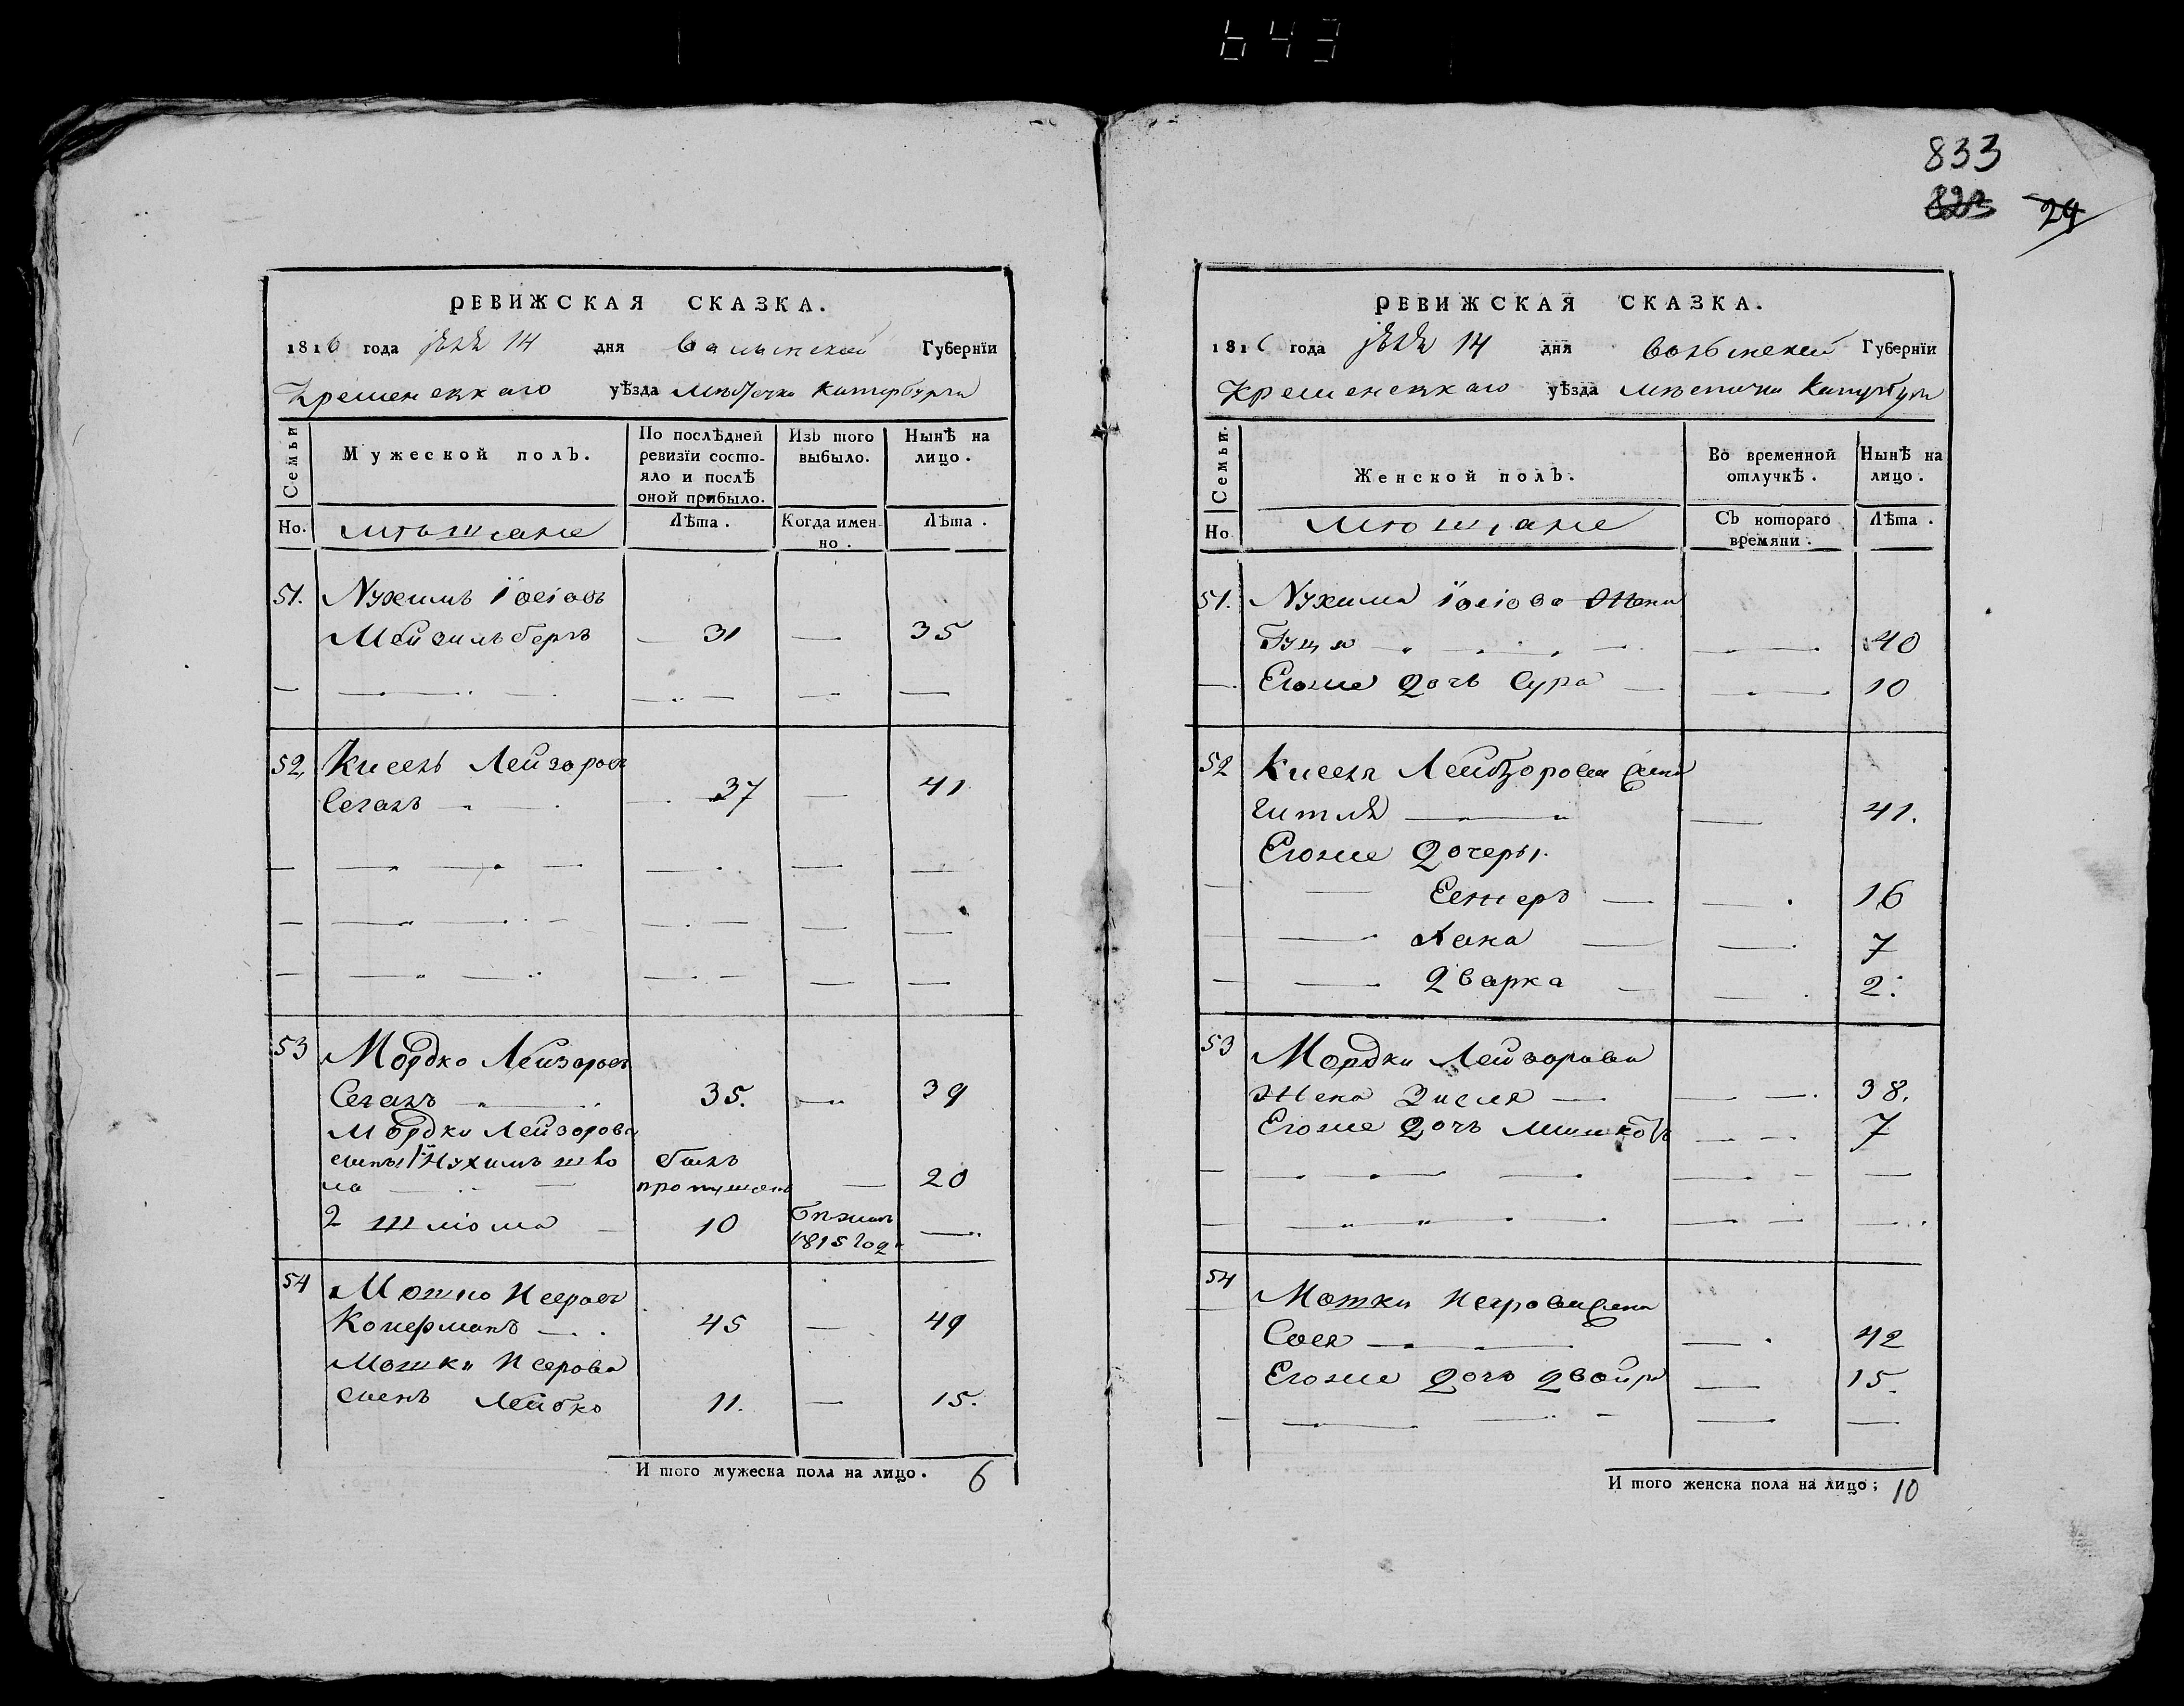 643
833
РЕВИЖСКАЯ СКАЗКА.
1816 года 14 дня Волынской Губернїи
Кременецкаго уѣзда мѣстечка Катербурга
Семьи
Мужеской полъ.
По послѣдней ревизїи состояло и послѣ оной прибыло.
Изъ того выбыло.
Нынѣ на лицо.
Но. мѣщане
Лѣта.
Когда именно.
Лѣта.
51. Нухимъ Іосіовъ
Мейзильбергъ — 31 — 35
52, Кисель Лейзоровъ
Сегалъ — 37 — 41
53 Мордко Лейзоровъ
Сегалъ — 35. — 39
Мордки Лейзорова
сынъ 1й Нухимъ шло
ма — былъ пропущенъ — 20
2 Шліома — 10 Бежалъ 1815 год —
54 Мошко Исеровъ
Коперманъ — 45 — 49
Мошки Исерова
сынъ Лейбко 11. — 15.
И того мужеска пола на лицо. 6
РЕВИЖСКАЯ СКАЗКА.
1816 года 14 дня Волынской Губернїи
Кременецкаго уѣзда мѣстечка Катербурга
Семьи.
Женской полъ.
Во временной отлучкѣ.
Нынѣ на лицо.
Но мѣщане
Съ котораго времяни.
Лѣта.
51. Нухима Іосіова жена
— 40
Егоже дочь Сура — 10
52 Киселя Лейзорова жена
Гитля — 41.
Егоже дочеры.
— Естеръ — 16
— Хана — 7
— Дварка — 2.
53 Мордки Лейзорова
жена Зисля — 38.
Егоже дочь — 7
54 Мошки Исерова жена
Сося — 42
Егоже дочь Двойра — 15.
И того женска пола на лицо; 10